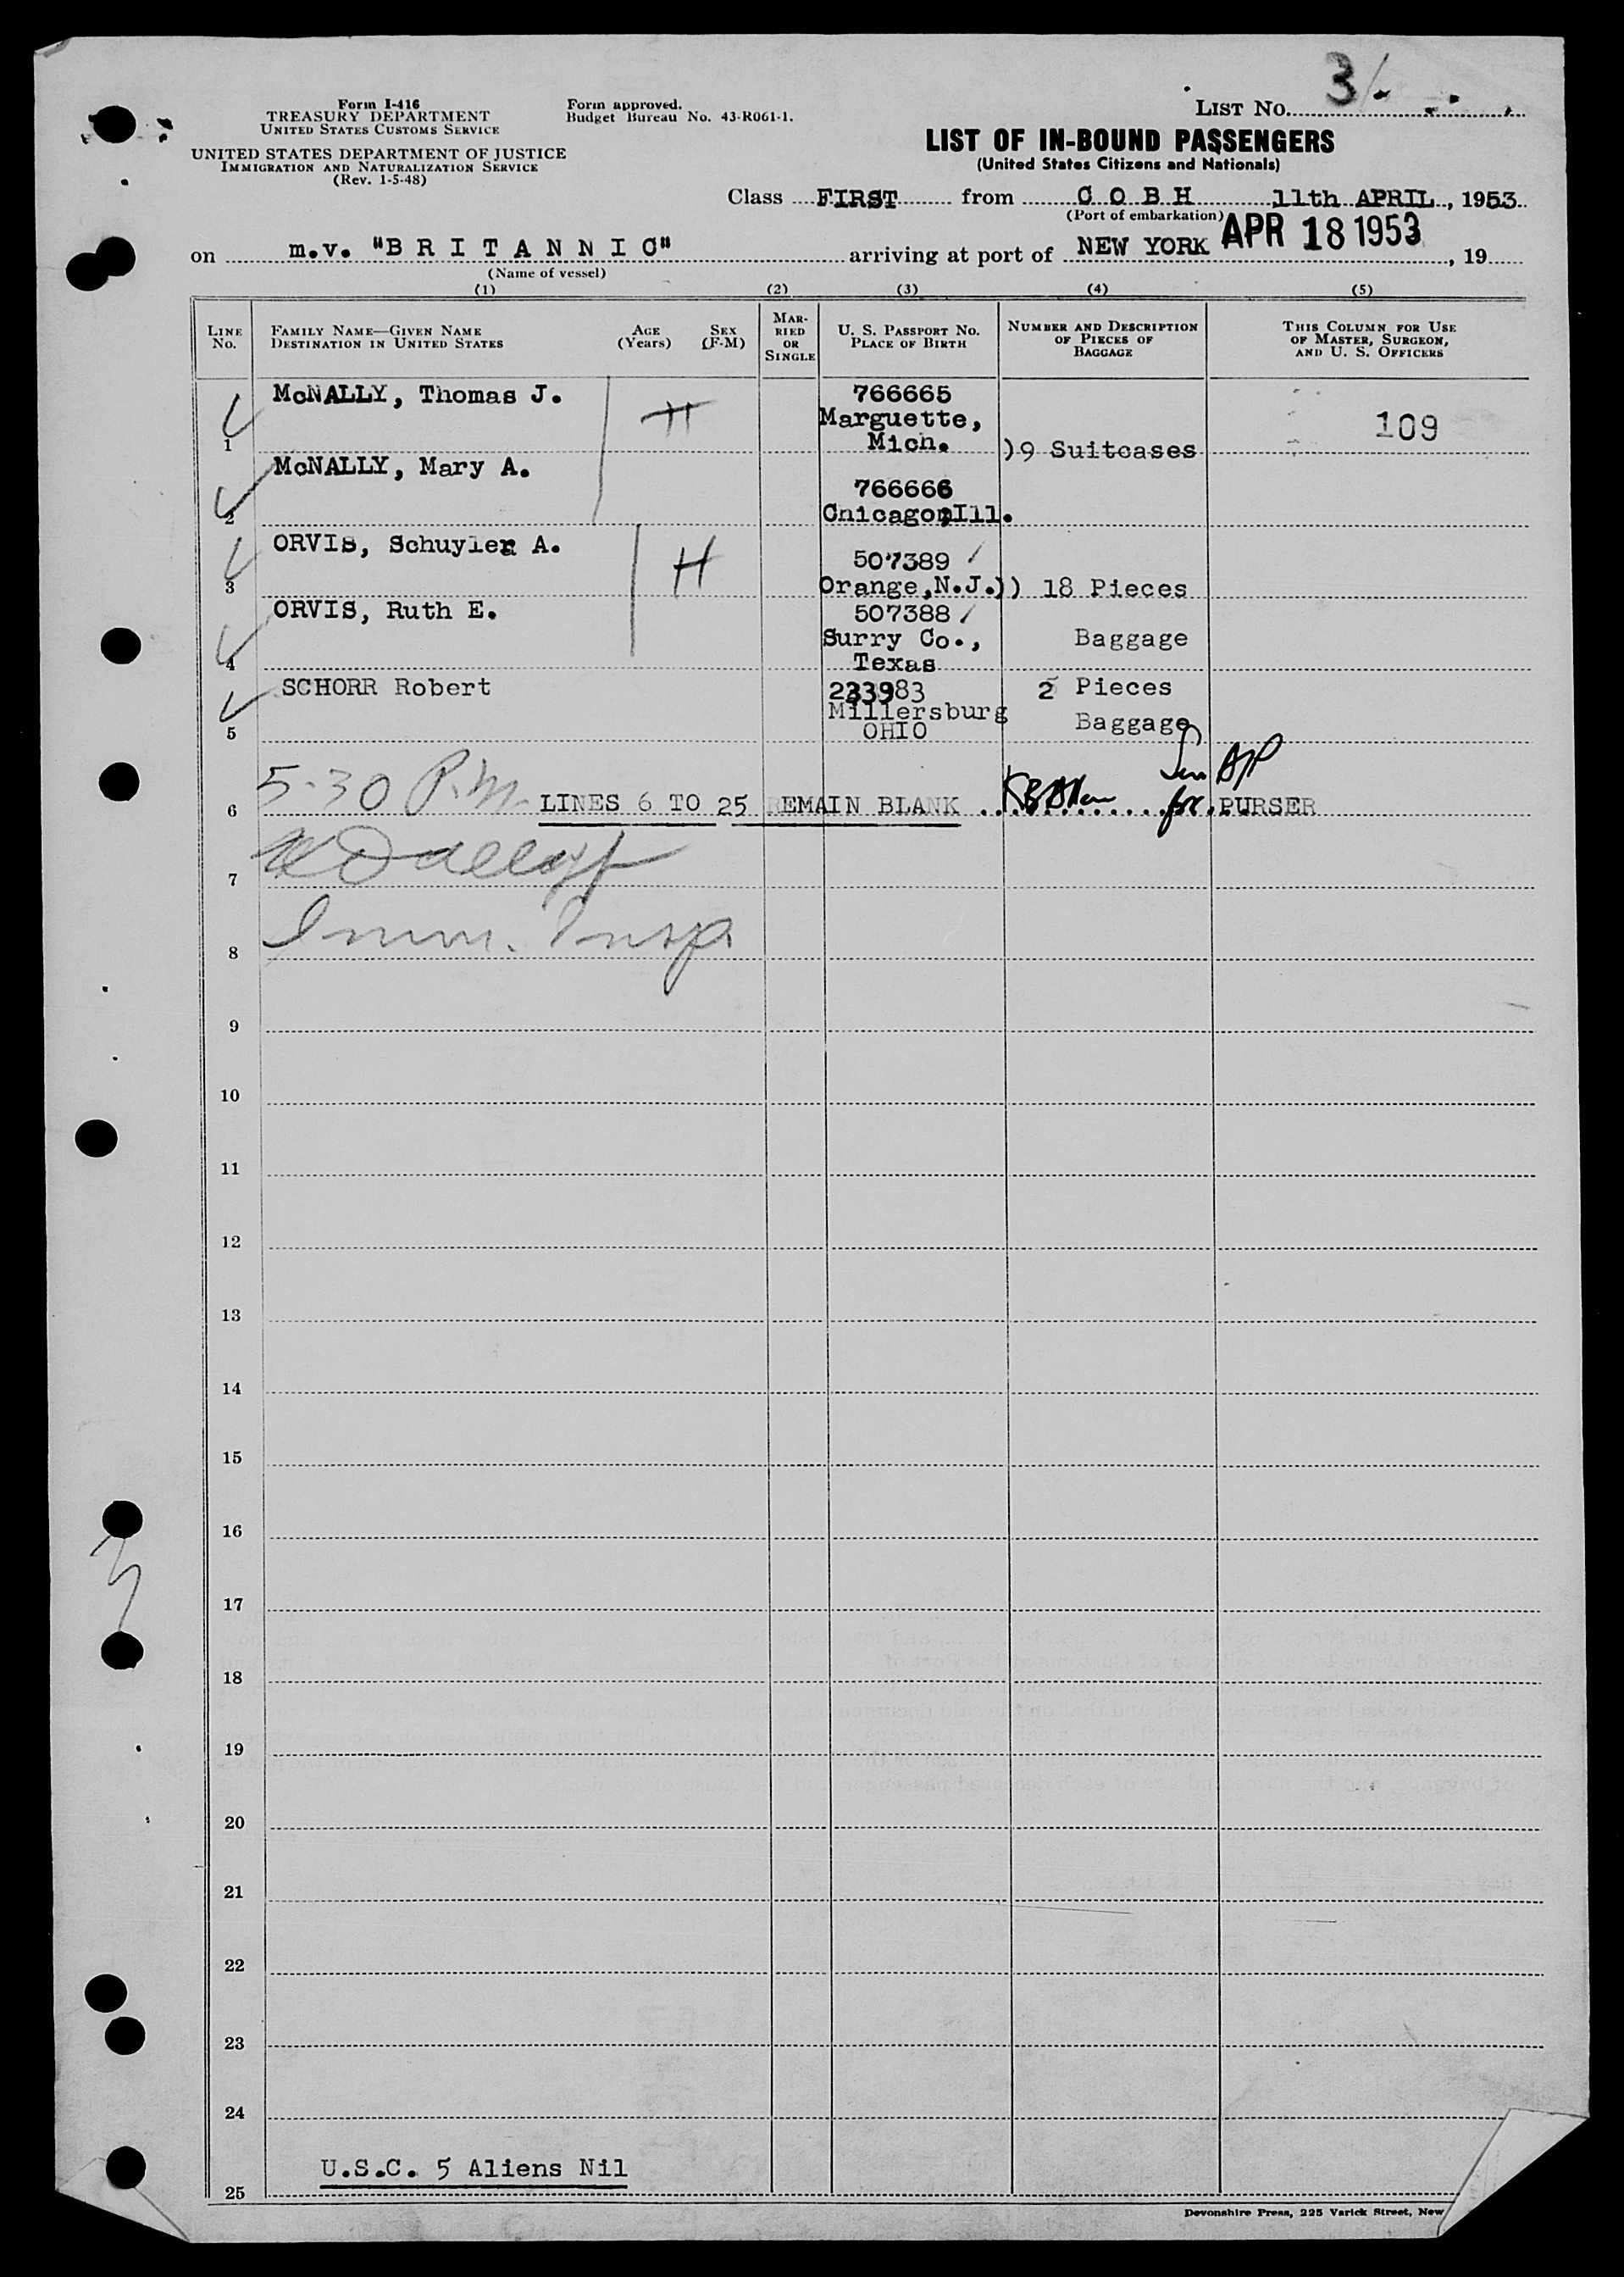 Form I-416
TREASURY DEPARTMENT
UNITED STATES CUSTOMS SERVICE
UNITED STATES DEPARTMENT OF JUSTICE
IMMIGRATION AND NATURALIZATION SERVICE
(Rev. 1-5-48)
Form approved.
Budget Bureau No. 43-R061-1.
LIST No. 3
LIST OF IN-BOUND PASSENGERS
(United States Citizens and Nationals)
Class FIRST from C O B H 11th APRIL, 1953
(Port of embarkation)
on m.v. "B R I T A N N I C" arriving at port of NEW YORK APR 18 1953, 19
(Name of vessel)
(1) (2) (3) (4) (5)
LINE No.
FAMILY NAME—GIVEN NAME
DESTINATION IN UNITED STATES
AGE (Years)
SEX (F-M)
MARRIED OR SINGLE
U. S. PASSPORT NO.
PLACE OF BIRTH
NUMBER AND DESCRIPTION OF PIECES OF BAGGAGE
THIS COLUMN FOR USE OF MASTER, SURGEON, AND U. S. OFFICERS
McNALLY, Thomas J. H 766665
Marguette,
109
1 Mich. )9 Suitcases
McNALLY, Mary A.
766666
2 Chicago,Ill.
ORVIS, Schuyler A. H 507389
3 Orange,N.J.)) 18 Pieces
ORVIS, Ruth E. 507388
Surry Co., Baggage
4 Texas
SCHORR Robert 233983 2 Pieces
Millersburg Baggage
5 OHIO
5-30 P.M.
6 LINES 6 TO 25 REMAIN BLANK for PURSER
7
Imm. Insp.
8
9
10
11
12
13
14
15
16
17
18
19
20
21
22
23
24
U.S.C. 5 Aliens Nil
25
Devonshire Press, 225 Varick Street, New